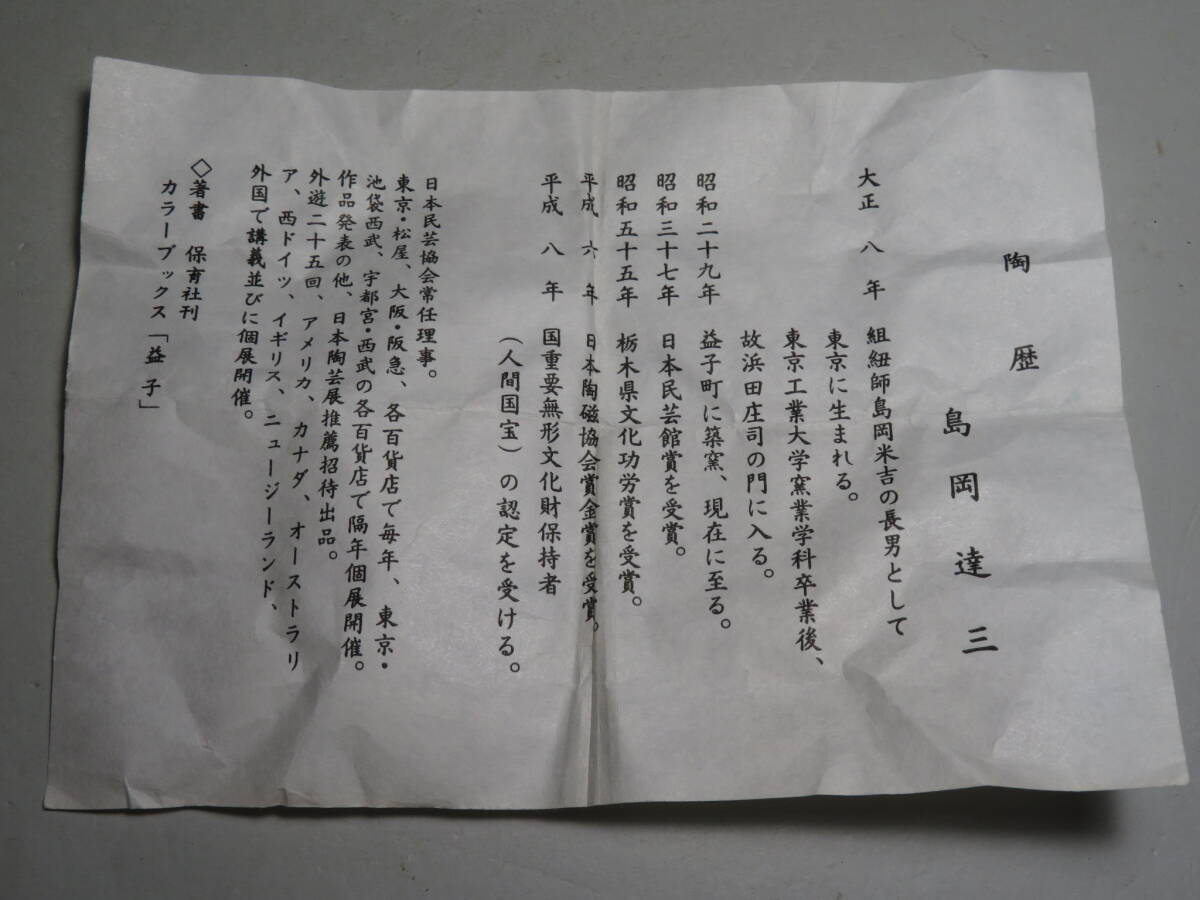 陶歴
島岡達三
大正 八 年 組紐師島岡米吉の長男として
東京に生まれる。
東京工業大学窯業学科卒業後、
故浜田庄司の門に入る。
昭和二十九年 益子町に築窯、現在に至る。
昭和三十七年 日本民芸館賞を受賞。
昭和五十五年 栃木県文化功労賞を受賞。
平成 六 年 日本陶磁協会賞金賞を受賞。
平成 八 年 国重要無形文化財保持者
(人間国宝)の認定を受ける。
日本民芸協会常任理事。
東京・松屋、大阪・阪急、各百貨店で毎年、東京・
池袋西武、宇都宮・西武の各百貨店で隔年個展開催。
作品発表の他、日本陶芸展推薦招待出品。
外遊二十五回、アメリカ、カナダ、オーストラリ
ア、西ドイツ、イギリス、ニュージーランド、
外国で講義並びに個展開催。
◇著書 保育社刊
カラーブックス「益子」